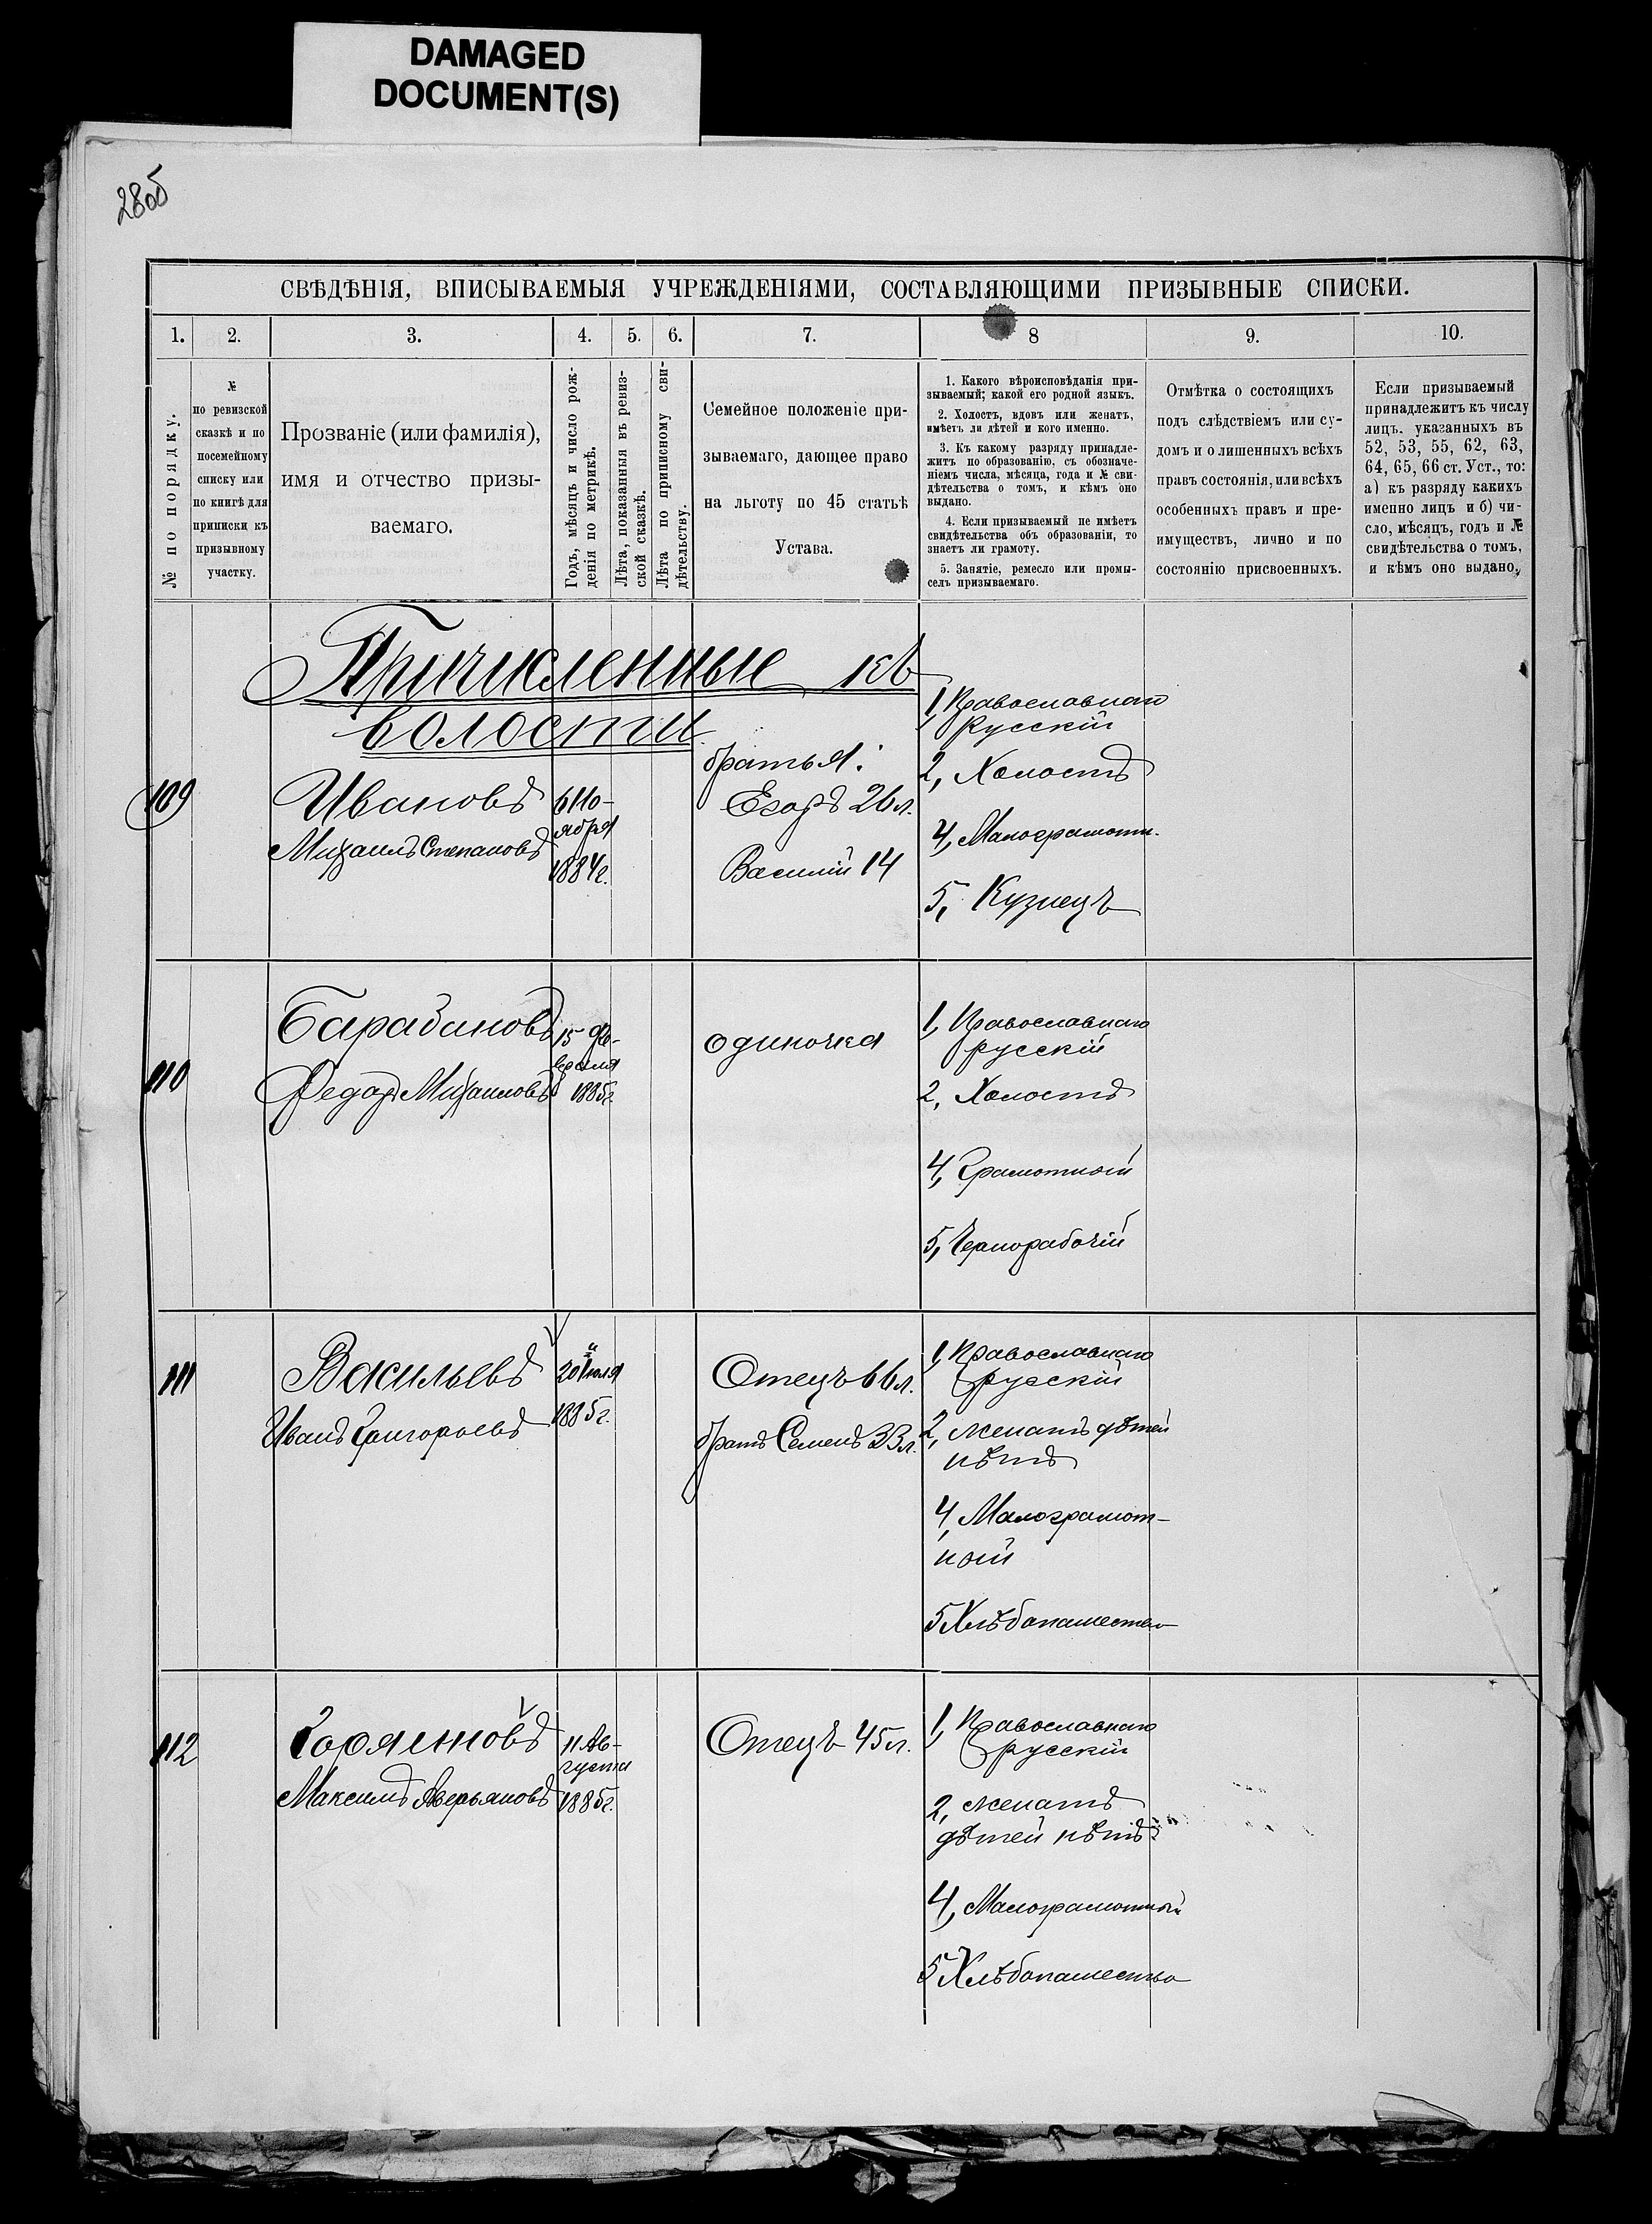 DAMAGED
DOCUMENT(S)
28об
СВѢДѢНІЯ, ВПИСЫВАЕМЫЯ УЧРЕЖДЕНІЯМИ, СОСТАВЛЯЮЩИМИ ПРИЗЫВНЫЕ СПИСКИ.
1. 2. 3. 4. 5. 6. 7. 8 9. 10.
№ по порядку.
№
по ревизской
сказкѣ и по
посемейному
списку или
по книгѣ для
приписки къ
призывному
участку.
Прозваніе (или фамилія),
имя и отчество призы-
ваемаго.
Годъ, мѣсяцъ и число рож-
денія по метрикѣ.
Лѣта, показанныя въ ревиз-
ской сказкѣ.
Лѣта по приписному сви-
дѣтельству.
Семейное положеніе при-
зываемаго, дающее право
на льготу по 45 статьѣ
Устава.
1. Какого вѣроисповѣданія при-
зываемый; какой его родной языкъ.
2. Холостъ, вдовъ или женатъ,
имѣетъ ли дѣтей и кого именно.
3. Къ какому разряду принадле-
житъ по образованію, съ обозначе-
ніемъ числа, мѣсяца, года и № сви-
дѣтельства о томъ, и кѣмъ оно
выдано.
4. Если призываемый не имѣетъ
свидѣтельства объ образованіи, то
знаетъ ли грамоту.
5. Занятіе, ремесло или промы-
селъ призываемаго.
Отмѣтка о состоящихъ
подъ слѣдствіемъ или су-
домъ и о лишенныхъ всѣхъ
правъ состоянія, или всѣхъ
особенныхъ правъ и пре-
имуществъ, лично и по
состоянію присвоенныхъ.
Если призываемый
принадлежитъ къ числу
лицъ, указанныхъ въ
52, 53, 55, 62, 63,
64, 65, 66 ст. Уст., то:
а) къ разряду какихъ
именно лицъ и б) чи-
сло, мѣсяцъ, годъ и №
свидѣтельства о томъ,
и кѣмъ оно выдано.
Причисленные къ
волости
109
Ивановъ
Михаилъ Степановъ
6 Но-
ября
1884г.
братья:
Егоръ 26 л.
Василій 14
1, Православнаго
Русскій
2, Холостъ
4, Малограмотн.
5, Кузнецъ
110
Барабановъ
Федоръ Михаиловъ
15 Фе-
враля
1885г.
одиночка
1, Православнаго
русскій
2, Холостъ
4, Грамотной
5, Чернорабочій
111
Васильевъ
Иванъ Григорьевъ
20 Іюля
1885г.
Отецъ 66 л.
братъ Семенъ 33 л.
1, Православнаго
русскій
2, женатъ дѣтей
нѣтъ
4, Малограмот-
ной
5 Хлѣбопашество
112
Максимъ Аверьяновъ
11 Ав-
густа
1885г.
Отецъ 45 л.
1, Православнаго
русскій
2, женатъ
дѣтей нѣтъ
4, Малограмотной
5 Хлѣбопашество